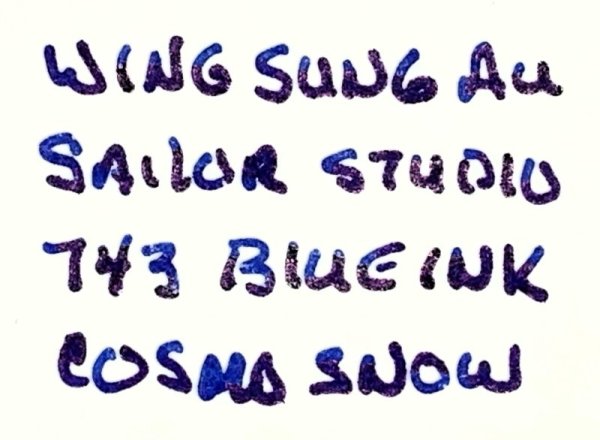 WING SUNG AU
SAILOR STUDIO
743 BLUE INK
COSMO SNOW